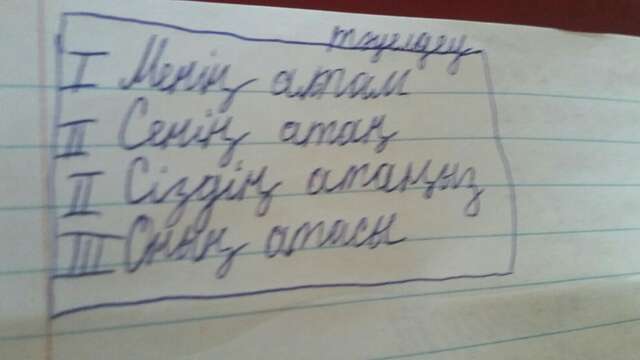 тәуелдеу
I Менің атам
II Сенің атаң
II Сіздің атаңыз
III Оның атасы